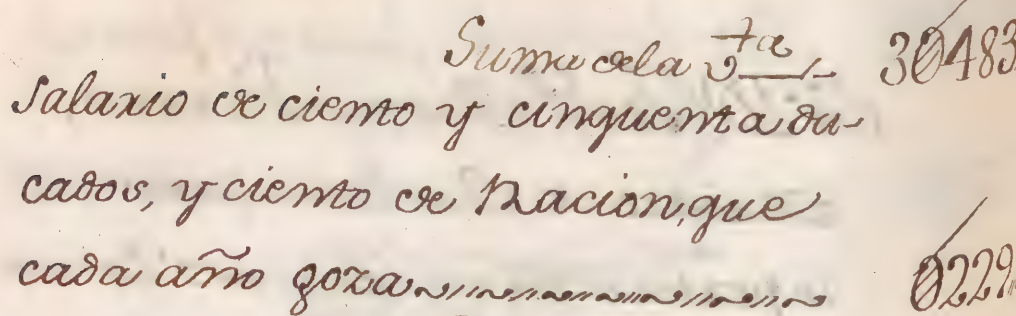 Suma dela 7a 30483
Salario de ciento y cinquenta du-
cados, y ciento de Racion, que
cada año goza 0229